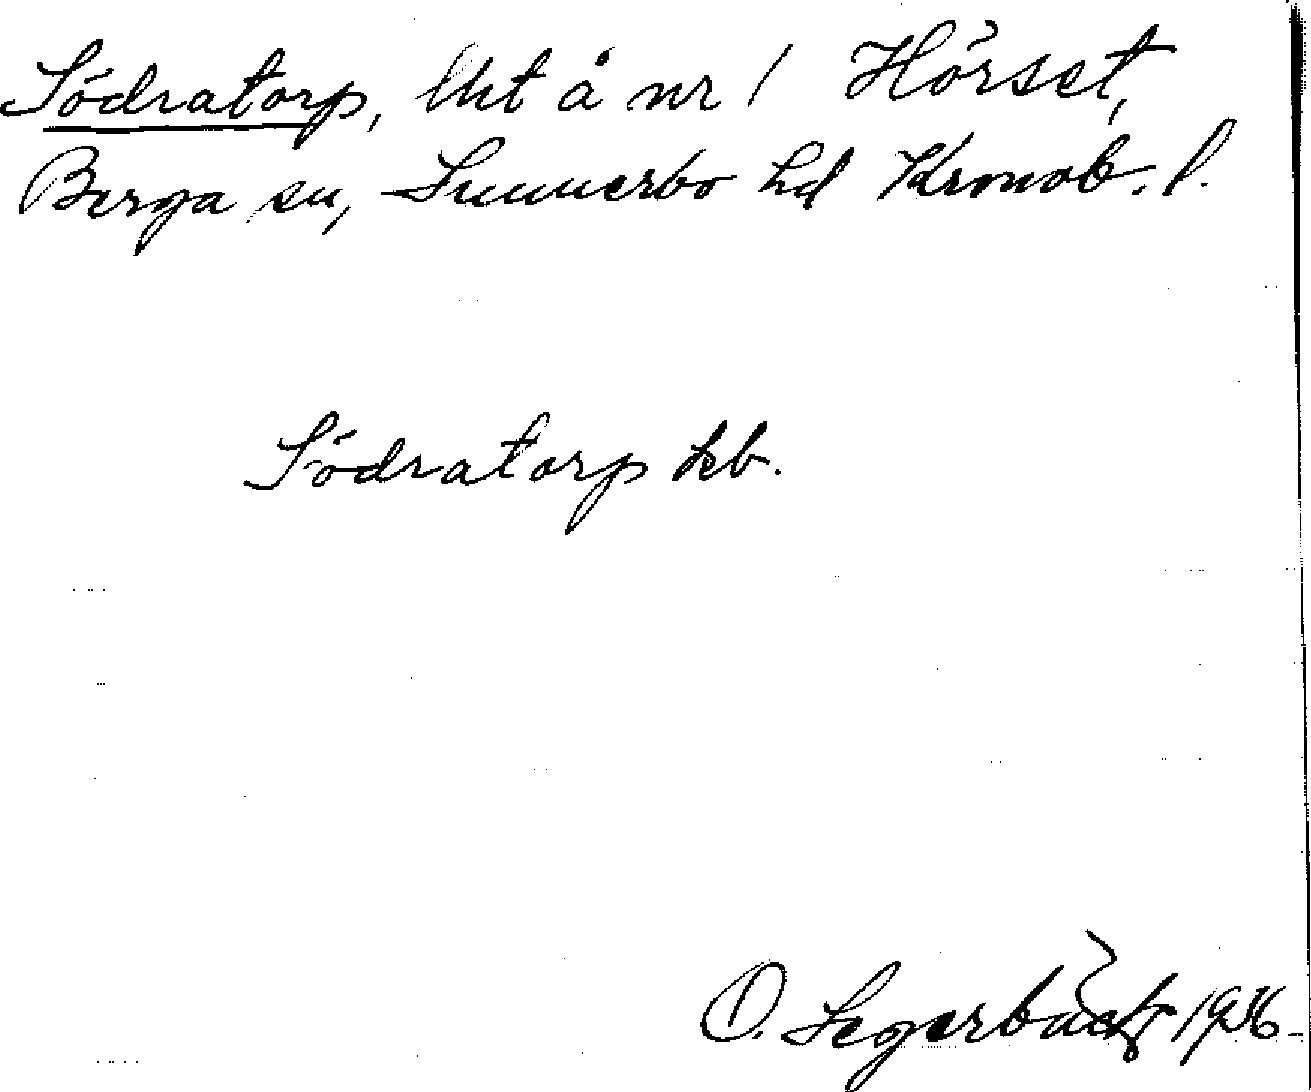 Södratorp, lht å nr 1 Hörset,
Berga sn, Sunnerbo hd Kronob. l.
Södratorp kb.
O. Segerbäck 1936